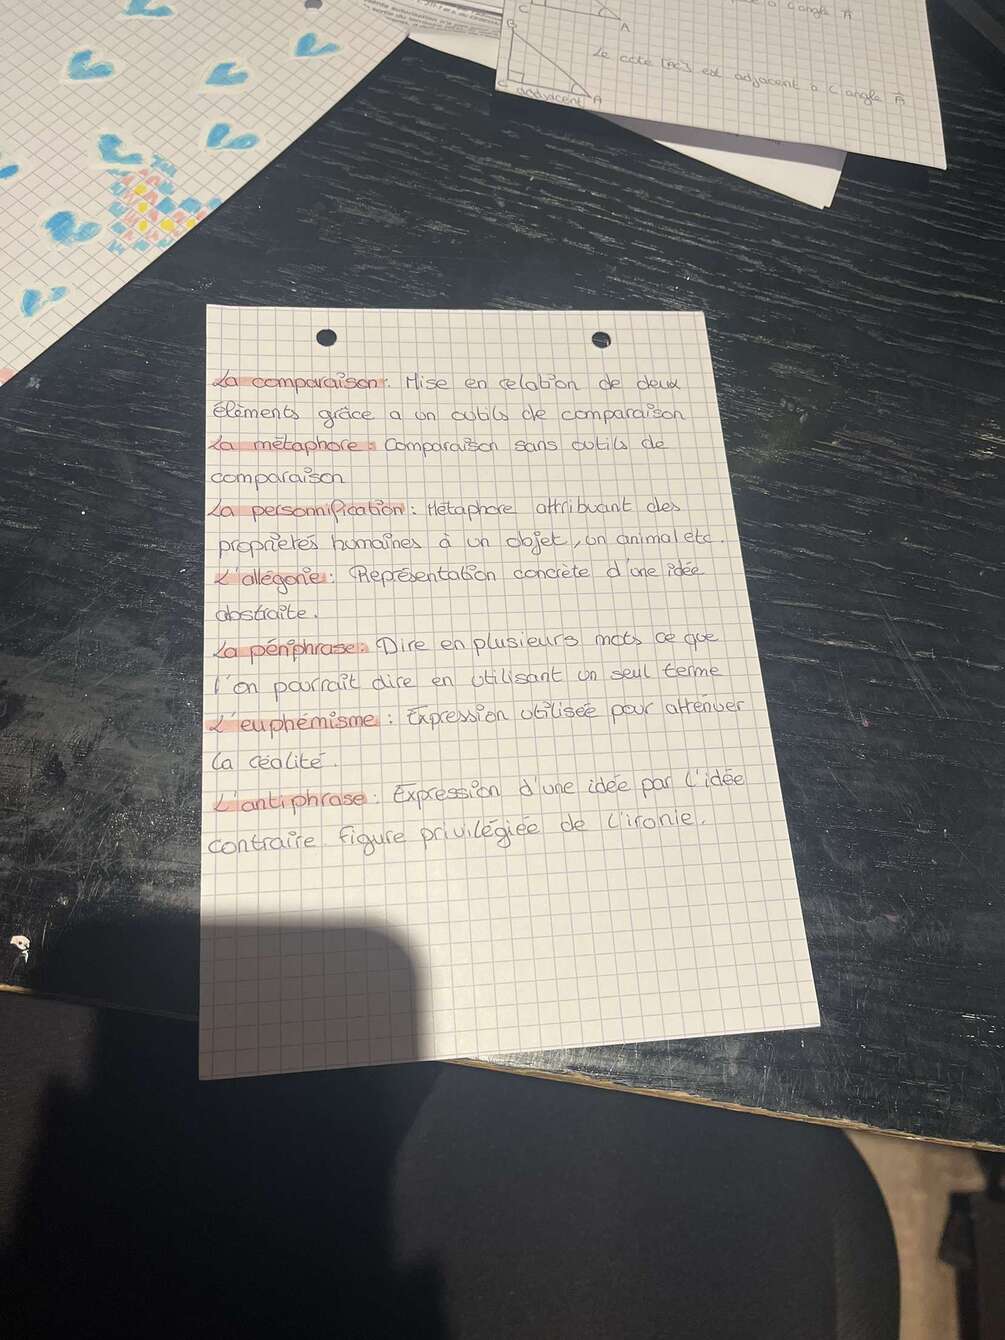 c angle A
C
A
B
Le coté [AC] est adjacent à l'angle A
adjacent
A
La comparaison: Mise en relation de deux
éléments grâce a un outils de comparaison
La métaphore: Comparaison sans outils de
comparaison
La personnification: Métaphore attribuant des
propriétés humaînes à un objet, un animal etc.
L'allégorie: Représentation concrète d'une idée
abstraite.
La périphrase: Dire en plusieurs mots ce que
l'on pourrait dire en utilisant un seul terme
L'euphémisme: Expression utilisée pour atténuer
la réalité.
L'antiphrase: Expression d'une idée par l'idée
contraire. figure privilégiée de l'ironie.